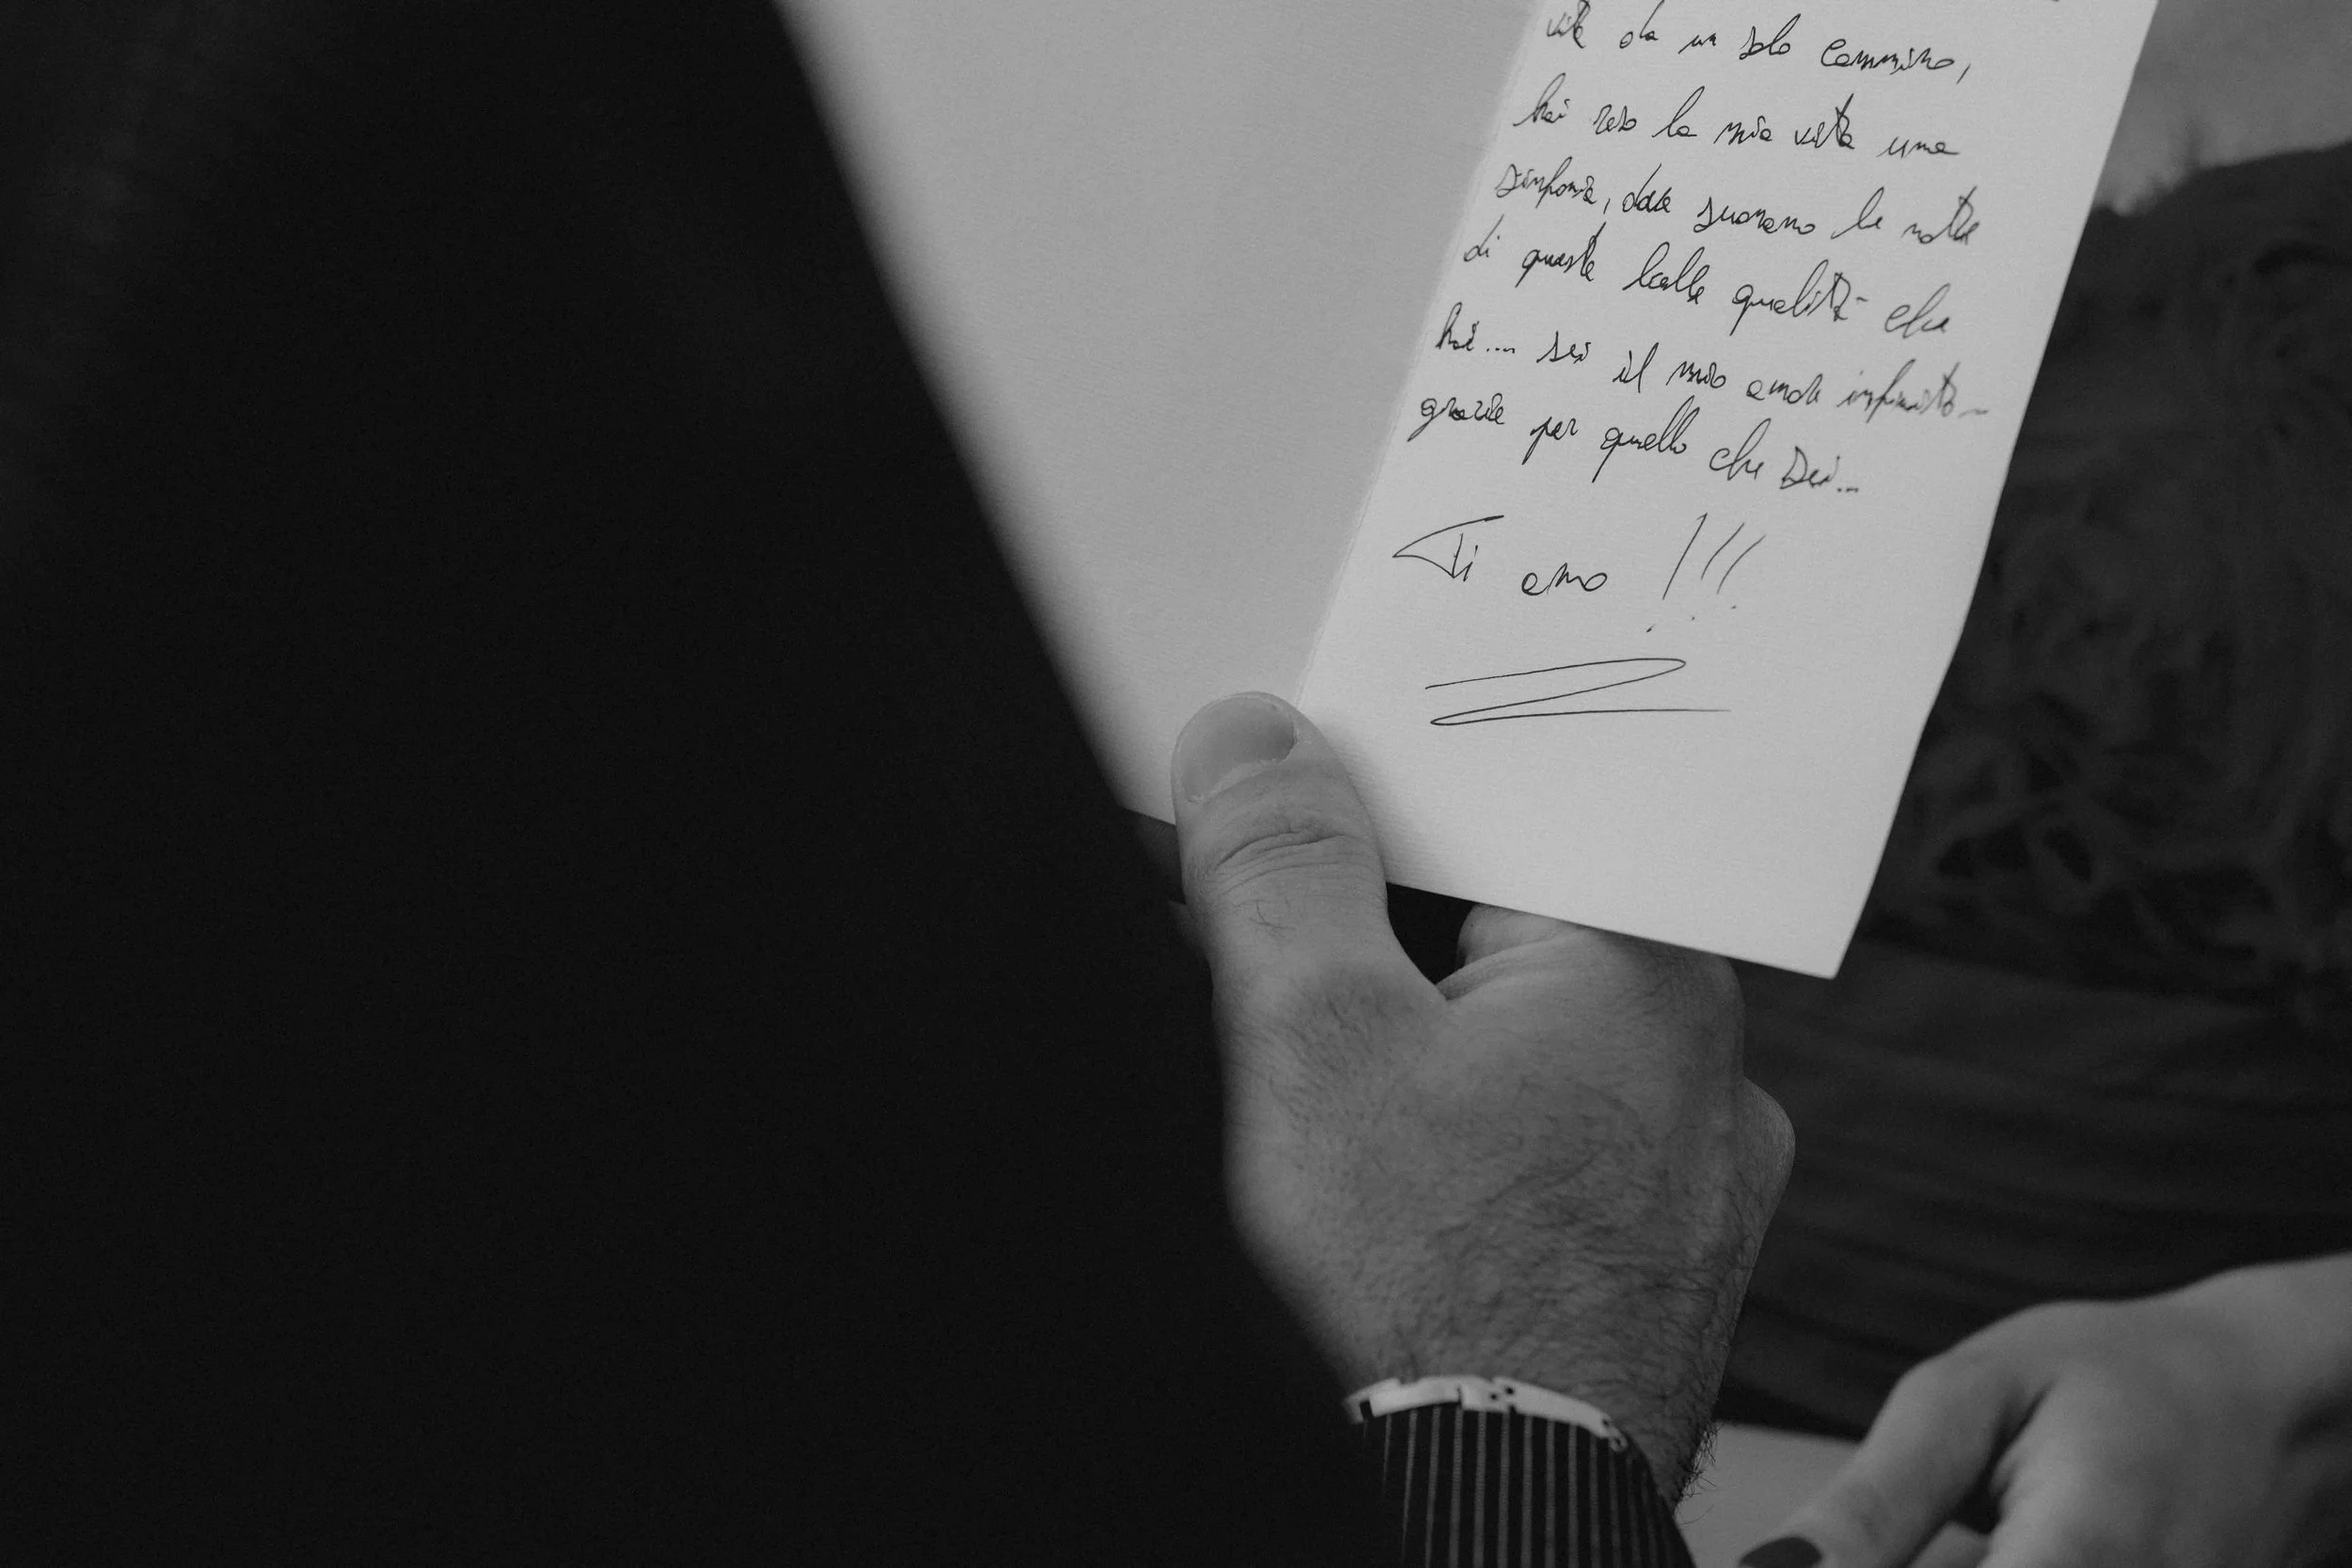 vite da un solo cammino,
hai reso la mia vita una
sinfonia, dove suonano le note
di queste belle qualità che
hai... sei il mio amore infinito...
grazie per quello che sei...
Ti amo!!!